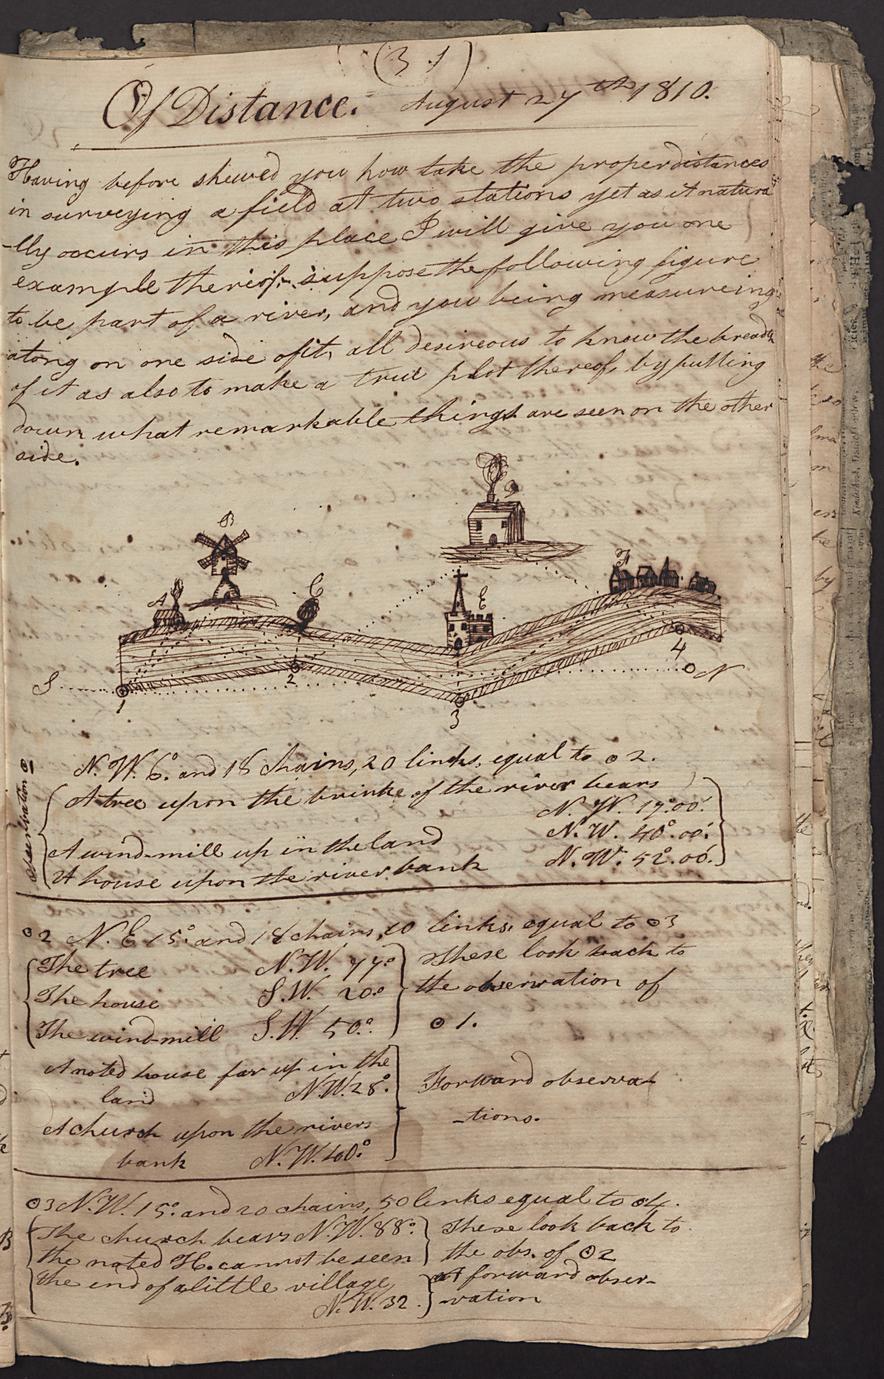 (31)
Of Distance. August 27th 1810.
Having before shewed you how take the proper distances
in surveying a field at two stations yet as it natura
-lly occurs in this place I will give you one
example thereof, suppose the following figure
to be part of a river, and you being measureing
along on one side of it, all desireous to know the breadth
of it as also to make a true plot thereof, by putting
down what remarkable things are seen on the other
side.
B
A
C
E
F
S
1
2
3
4
N
N.W. 6° and 18 Chains, 20 links, equal to ⊙ 2.
Observation ⊙
A tree upon the brinke of the river bears
N.W. 17°.00'.
A wind-mill up in the land N.W. 40°.00'.
A house upon the river bank N.W. 52°.00'.
⊙2 N.E 15° and 18 chains, 10 links, equal to ⊙3
The tree N.W. 77°
The house S.W. 20°
The windmill S.W. 50°.
These look back to
the observation of
⊙ 1.
A noted house far up in the
land N.W. 28°.
A church upon the rivers
bank N.W. 60°
Forward observat
-tions.
⊙3 N.W. 15° and 20 chains, 50 links equal to ⊙4.
The church bears N.W. 88°.
the noted H. cannot be seen
These look back to
the obs. of ⊙2
the end of a little village
N.W. 32.
forward obser-
-vation